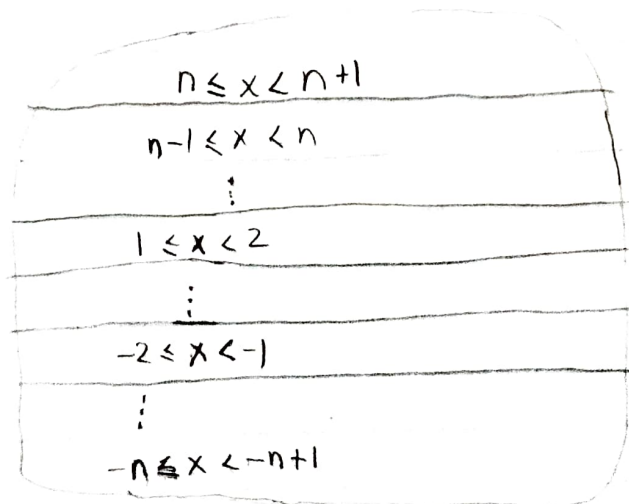 n ≤ x < n+1
n-1 ≤ x < n
⋮
1 ≤ x < 2
⋮
-2 ≤ x < -1
⋮
-n ≤ x < -n+1